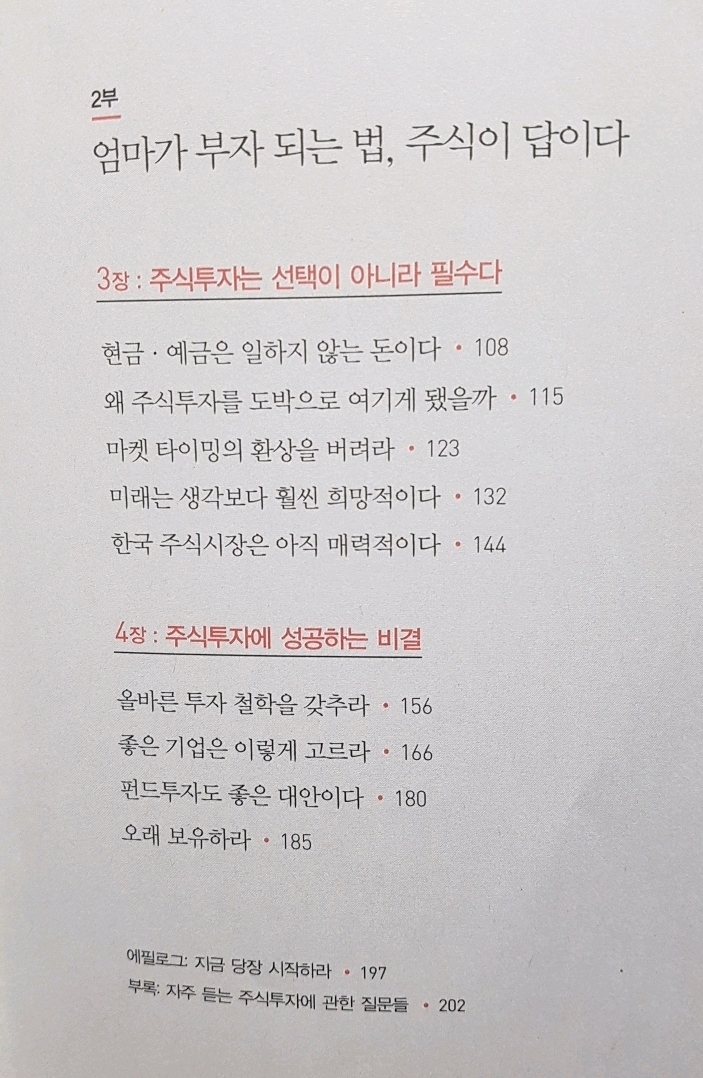 2부
엄마가 부자 되는 법, 주식이 답이다
3장 : 주식투자는 선택이 아니라 필수다
현금 · 예금은 일하지 않는 돈이다 • 108
왜 주식투자를 도박으로 여기게 됐을까 • 115
마켓 타이밍의 환상을 버려라 • 123
미래는 생각보다 훨씬 희망적이다 • 132
한국 주식시장은 아직 매력적이다 • 144
4장 : 주식투자에 성공하는 비결
올바른 투자 철학을 갖추라 • 156
좋은 기업은 이렇게 고르라 • 166
펀드투자도 좋은 대안이다 • 180
오래 보유하라 • 185
에필로그: 지금 당장 시작하라 • 197
부록: 자주 듣는 주식투자에 관한 질문들 • 202